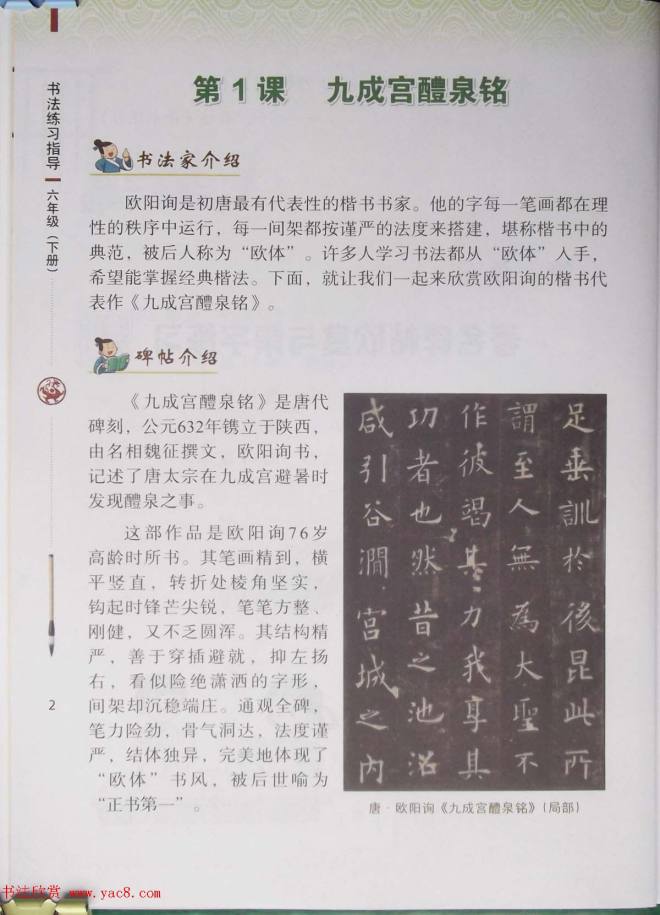 第1课 九成宫醴泉铭
书法练习指导
六年级（下册）
书法家介绍
欧阳询是初唐最有代表性的楷书书家。他的字每一笔画都在理
性的秩序中运行，每一间架都按谨严的法度来搭建，堪称楷书中的
典范，被后人称为“欧体”。许多人学习书法都从“欧体”入手，
希望能掌握经典楷法。下面，就让我们一起来欣赏欧阳询的楷书代
表作《九成宫醴泉铭》。
碑帖介绍
《九成宫醴泉铭》是唐代
碑刻，公元632年镌立于陕西，
由名相魏征撰文，欧阳询书，
记述了唐太宗在九成宫避暑时
发现醴泉之事。
这部作品是欧阳询76岁
高龄时所书。其笔画精到，横
平竖直，转折处棱角坚实，
钩起时锋芒尖锐，笔笔方整、
刚健，又不乏圆浑。其结构精
严，善于穿插避就，抑左扬
右，看似险绝潇洒的字形，
间架却沉稳端庄。通观全碑，
笔力险劲，骨气洞达，法度谨
严，结体独异，完美地体现了
“欧体”书风，被后世喻为
“正书第一”。
足垂訓於後昆此所
謂至人無為大聖不
作彼竭其力我享其
功者也然昔之池沼
咸引谷澗宫城之内
唐·欧阳询《九成宫醴泉铭》（局部）
2
书法欣赏 www.yac8.com